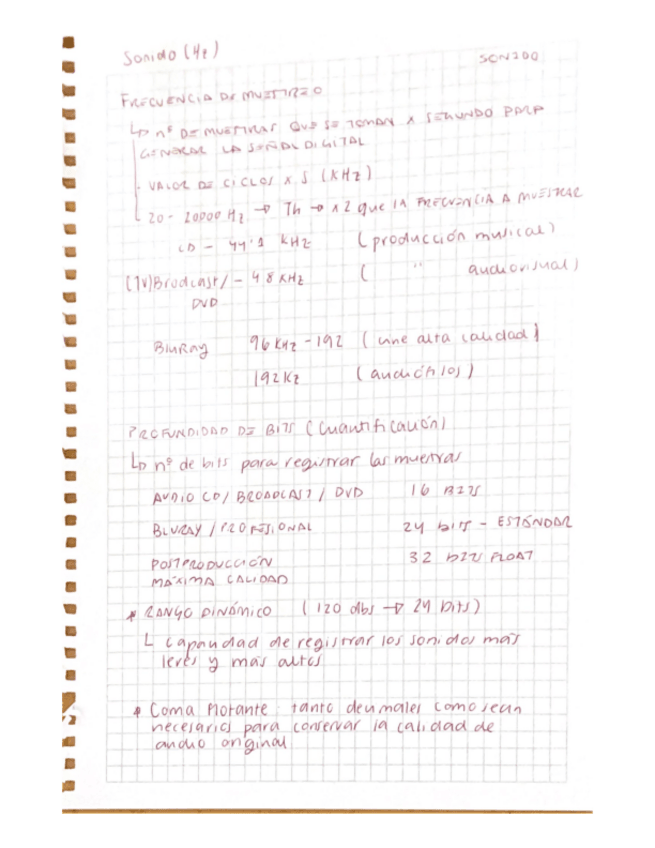 Sonido (Hz)
SONIDO
FRECUENCIA DE MUESTREO
↳ nº DE MUESTRAS QUE SE TOMAN X SEGUNDO PARA
GENERAR LA SEÑAL DIGITAL
· VALOR DE CICLOS X S (KHz)
20 - 20000 Hz → Th → x2 que lA FRECUENCIA A MUESTRAR
CD - 44'1 KHz (producción musical)
(TV) Brodcast/ - 48 KHz ( " audiovisual)
DVD
BluRay 96 KHz - 192 (cine alta calidad)
192 Kz (audiófilos)
PROFUNDIDAD DE BITS (Cuantificación)
↳ nº de bits para registrar las muestras
AUDIO CD / BROADCAST / DVD 16 BITS
BLURAY / PROFESIONAL 24 bits - ESTÁNDAR
POSTPRODUCCIÓN 32 bits FLOAT
MÁXIMA CALIDAD
* RANGO DINÁMICO (120 dbs → 24 bits)
↳ capacidad de registrar los sonidos más
leves y más altos
* Coma flotante: tanto decimales como sean
necesarios para conservar la calidad de
audio original